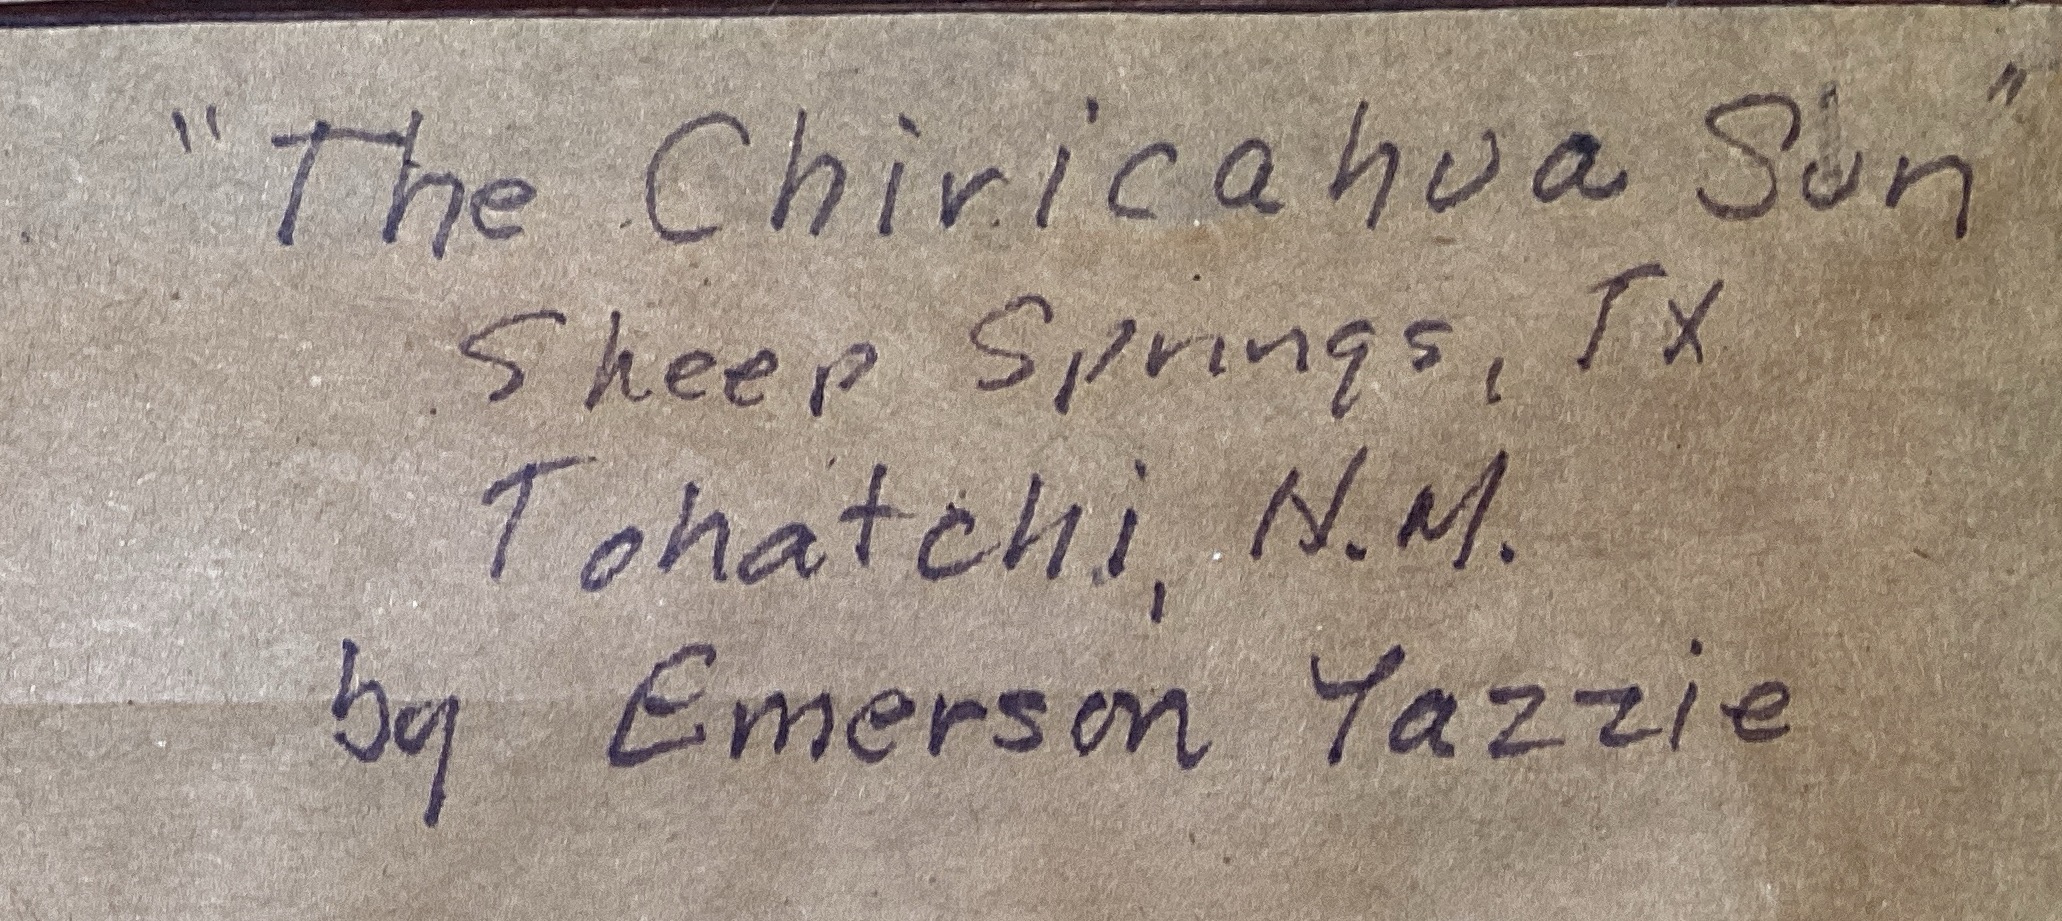 "The Chiricahua Sun"
Sheep Springs, TX
Tohatchi, N.M.
by Emerson Yazzie